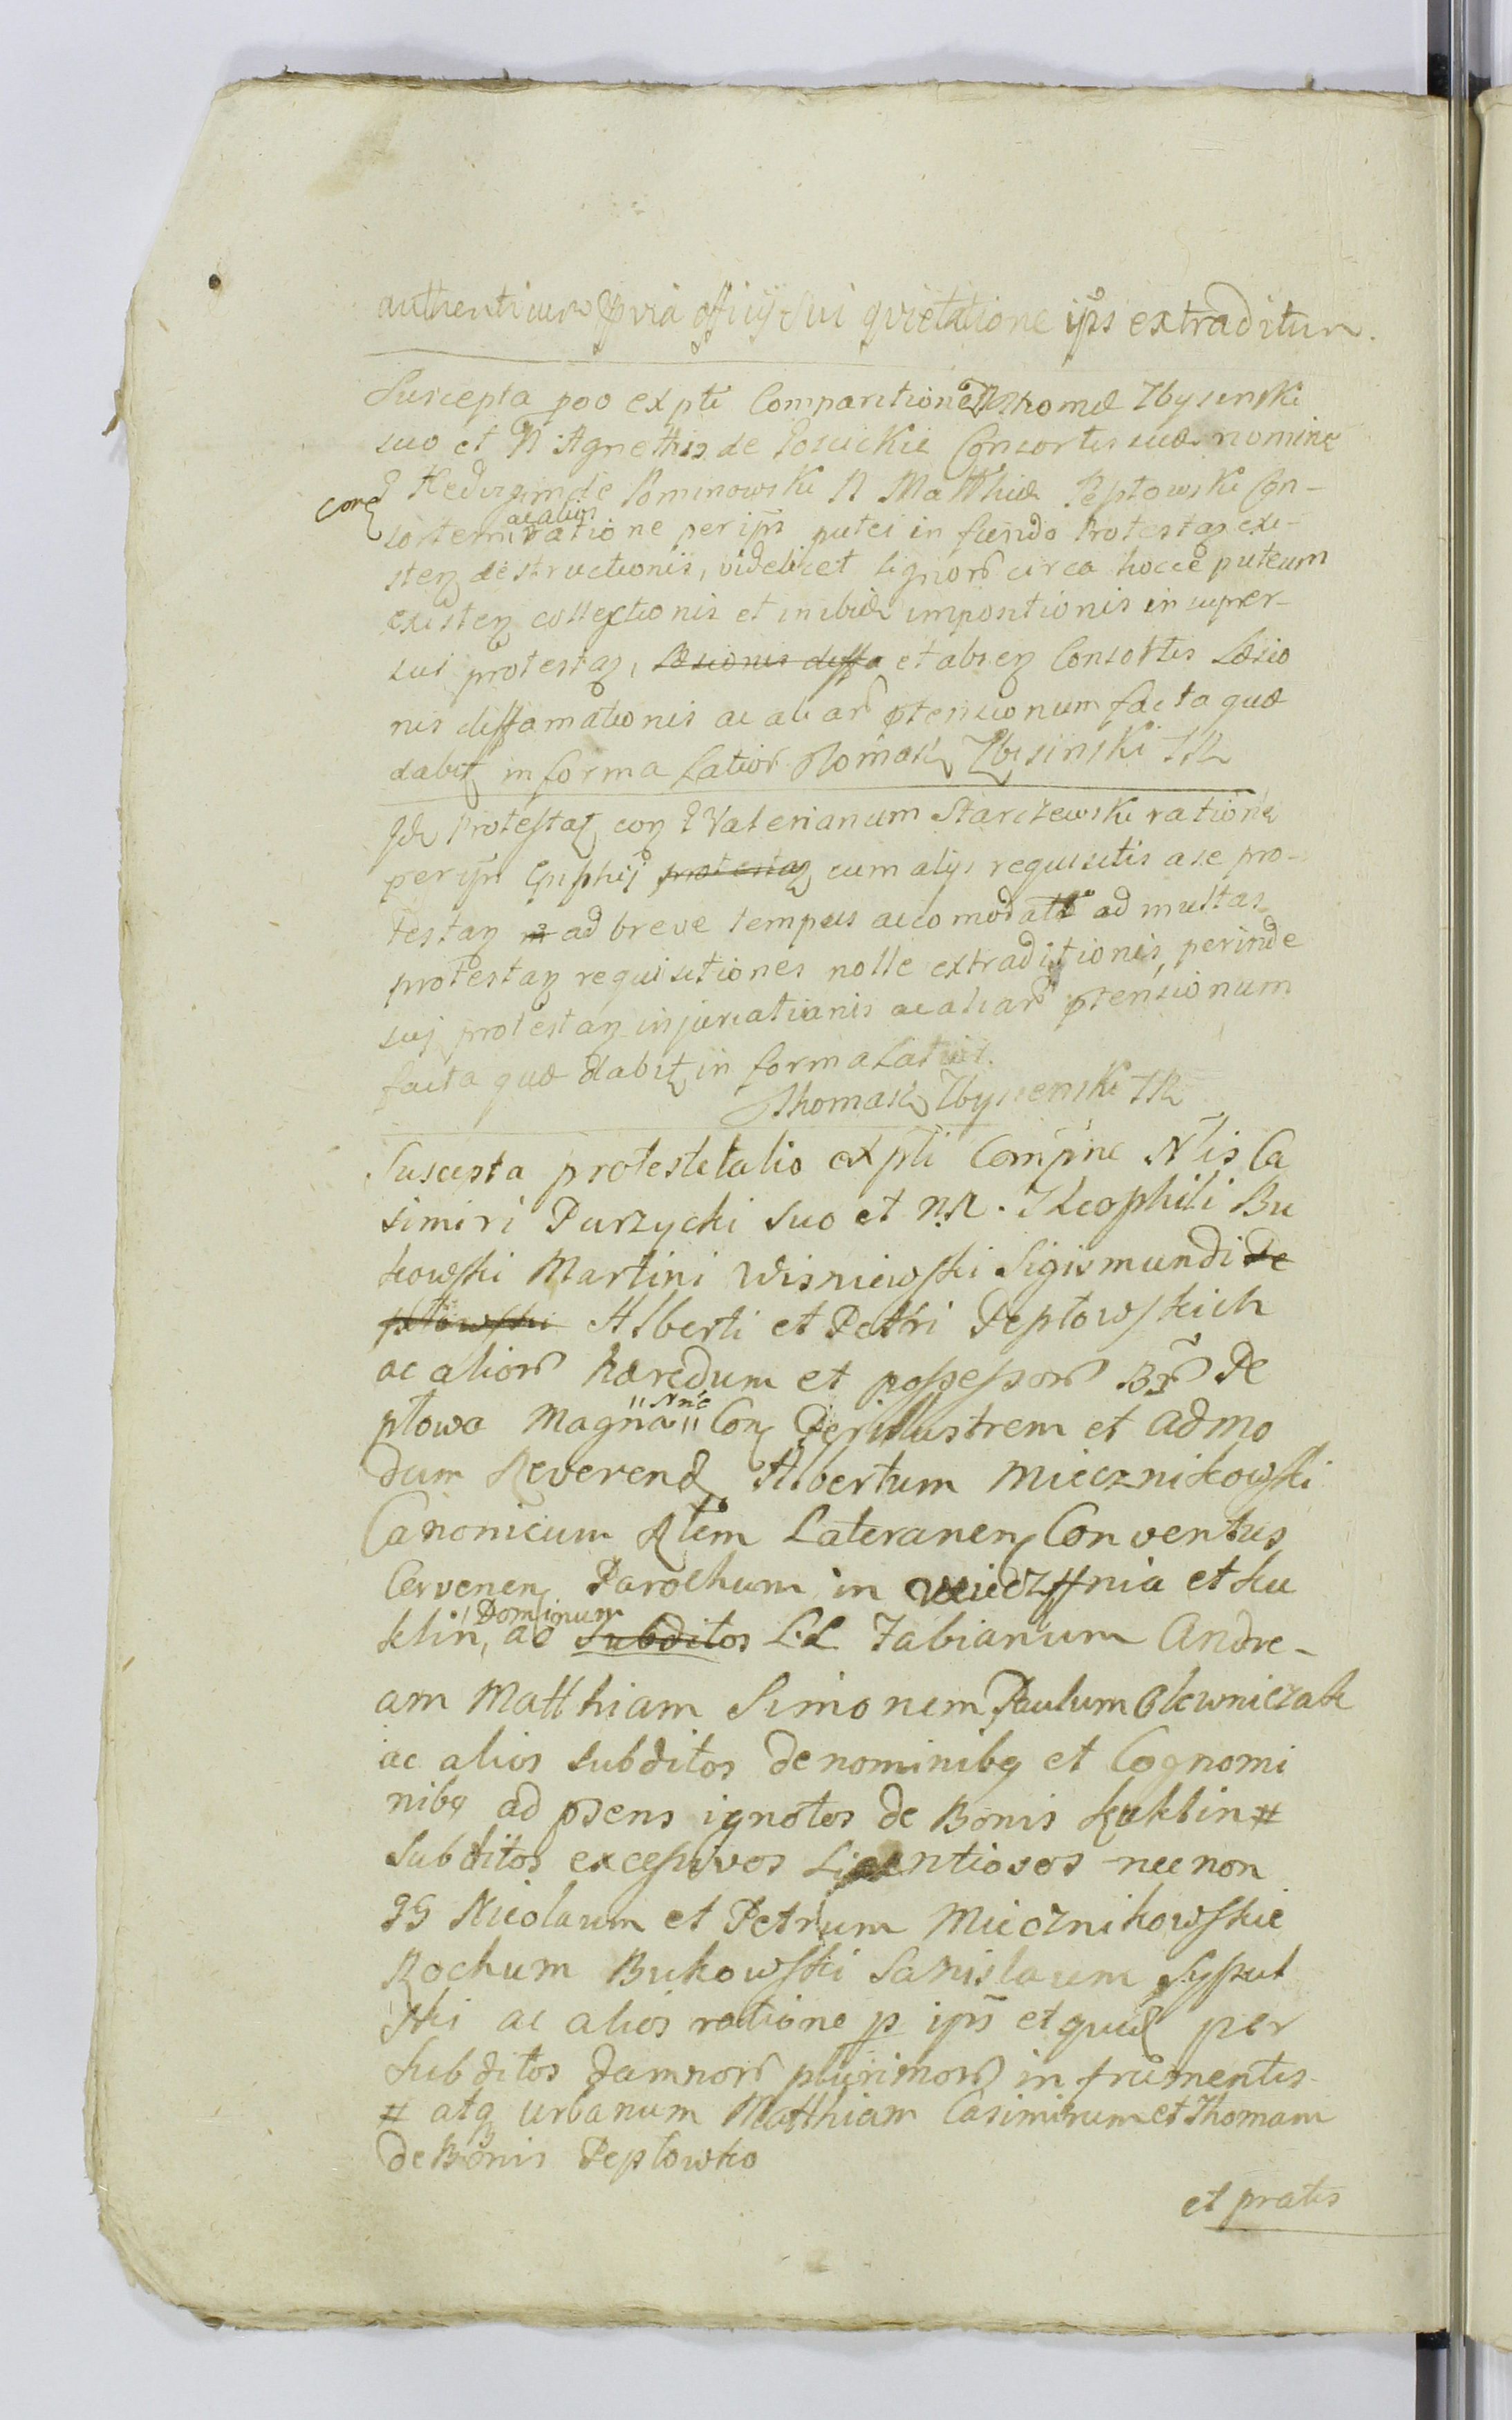 authenticum pvia officij sui qvietatione ips extraditum.
Suscepta poo ex pte Comparitione N Thomæ Zbysinski
suo et N Agnethis de Consortis suæ nomine
con G Hedvigim de Pominowski N Matthiæ Peptowski Con-
sortem ac alios ratione per ips putei in fundo Protestaņ exi-
steņ destructionis, videlicet lignorū circa hocce puteum
existeņ collectionis et inibiḋ impositionis in super-
sui protestaņ, læsionis diffa et abseņ Consortis Læsio
nis diffamationis ac aliarū ptensionum facta quæ
dabiţ in forma latiori Tomasz Zbisinski
Iḋ Protestaţ coņ G Valerianum Starczewski ratione
per ipn protestaņ cum alijs requisitis a se pro-
testaņ ad breve tempus accomodato ad multas
protestaņ requisitiones nolle extraditionis, perinde
sui protestaņ injuriationis ac aliarū ptensionum
facta quæ dabiţ in forma latiori.
Thomasz Zbysienski
Suscepta protestatio ex pte Compne Nlis Ca
simiri Purzycki suo et NN. Theophili Bu
kowski Martini Wisniewski Sigismundi Pe
ptowski Alberti et Petri Peptowskich
ac aliorū hæredum et possessorū Brū Pe
ptowo Magna "Nne" Con Perillustrem et admo
dum Reverend Albertum Miecznikowski
Canonicum Rlem Lateranen Conventus
Cervenen Parochum in Wieczffnia et Ku
klin, ac Dominum Subditos LL Fabianum Andre-
am Matthiam Simonem Paulum Olewniczak
ac alios subditos de nominibq et Cognomi
nibq ad psens ignotos de Bonis Kuklin #
Subditos excessivos Licentiosos nec non
GG Nicolaum et Petrum Miecznikowskie
Rochum Bukowski Sanislaum Sysput
ski ac alios ratione p ips et quid per
Subditos damnorū plurimorū in frumentis
# atq urbanum Matthiam Casimirum et Thomam
de Bonis Peptowko
et pratis